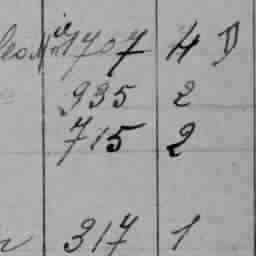 1707 4 D
935 2
715 2
317 1